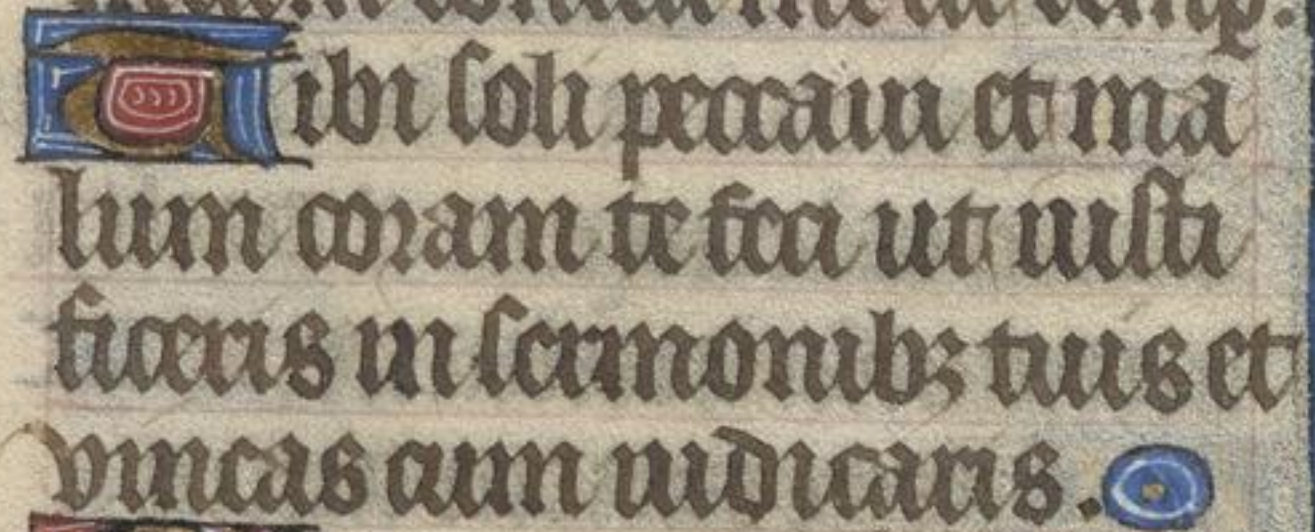 contra me est semp.
Tibi soli peccaui et ma
lum coram te feci ut iusti
ficeris in sermonibꝫ tuis et
vincas cum iudicaris.